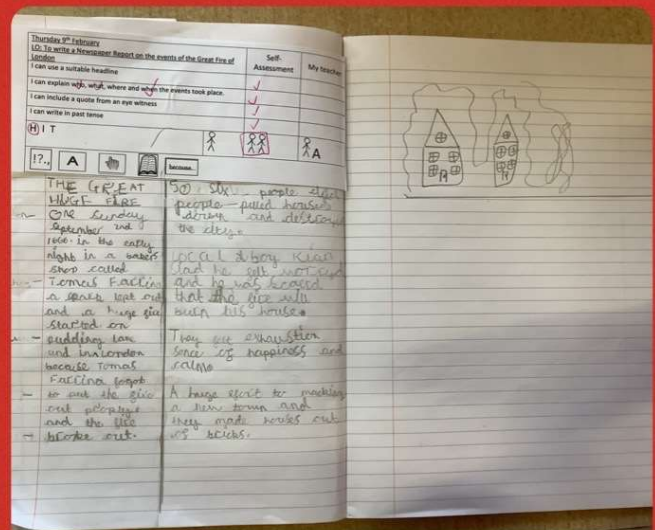 Thursday 9th February
LO: To write a Newspaper Report on the events of the Great Fire of London
Self-Assessment
My teacher
I can use a suitable headline
I can explain who, what, where and when the events took place.
I can include a quote from an eye witness
I can write in past tense
H I T
A
!?.,
A
because...
THE GREAT
HUGE FIRE
One Sunday
September 2nd
1666. in the early
night in a bakers
shop called
Tomas Farrina
a spark lept out
and a huge fire
started on
pudding lane
and in London
because Tomas
Farrina forgot
to put the fire
out
and the fire
broke out.
So, six people
people pulled houses
down and
the city.
Local boy Kian
said he felt
and he was scared
that the fire will
burn his house.
They exhaustion
sence of happiness and
calm.
A huge to
a new town and
they made houses out
of bricks.